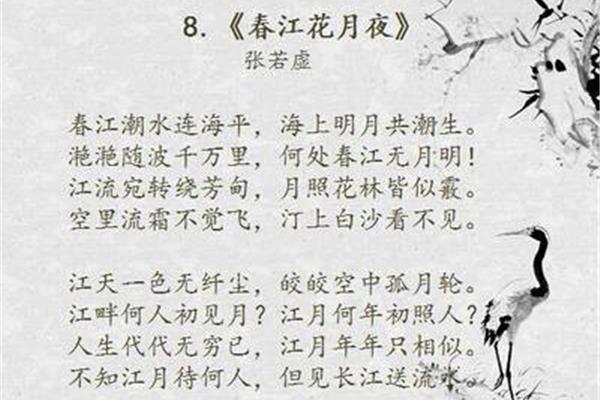 8.《春江花月夜》
张若虚
春江潮水连海平，海上明月共潮生。
滟滟随波千万里，何处春江无月明！
江流宛转绕芳甸，月照花林皆似霰。
空里流霜不觉飞，汀上白沙看不见。
江天一色无纤尘，皎皎空中孤月轮。
江畔何人初见月？江月何年初照人？
人生代代无穷已，江月年年只相似。
不知江月待何人，但见长江送流水。